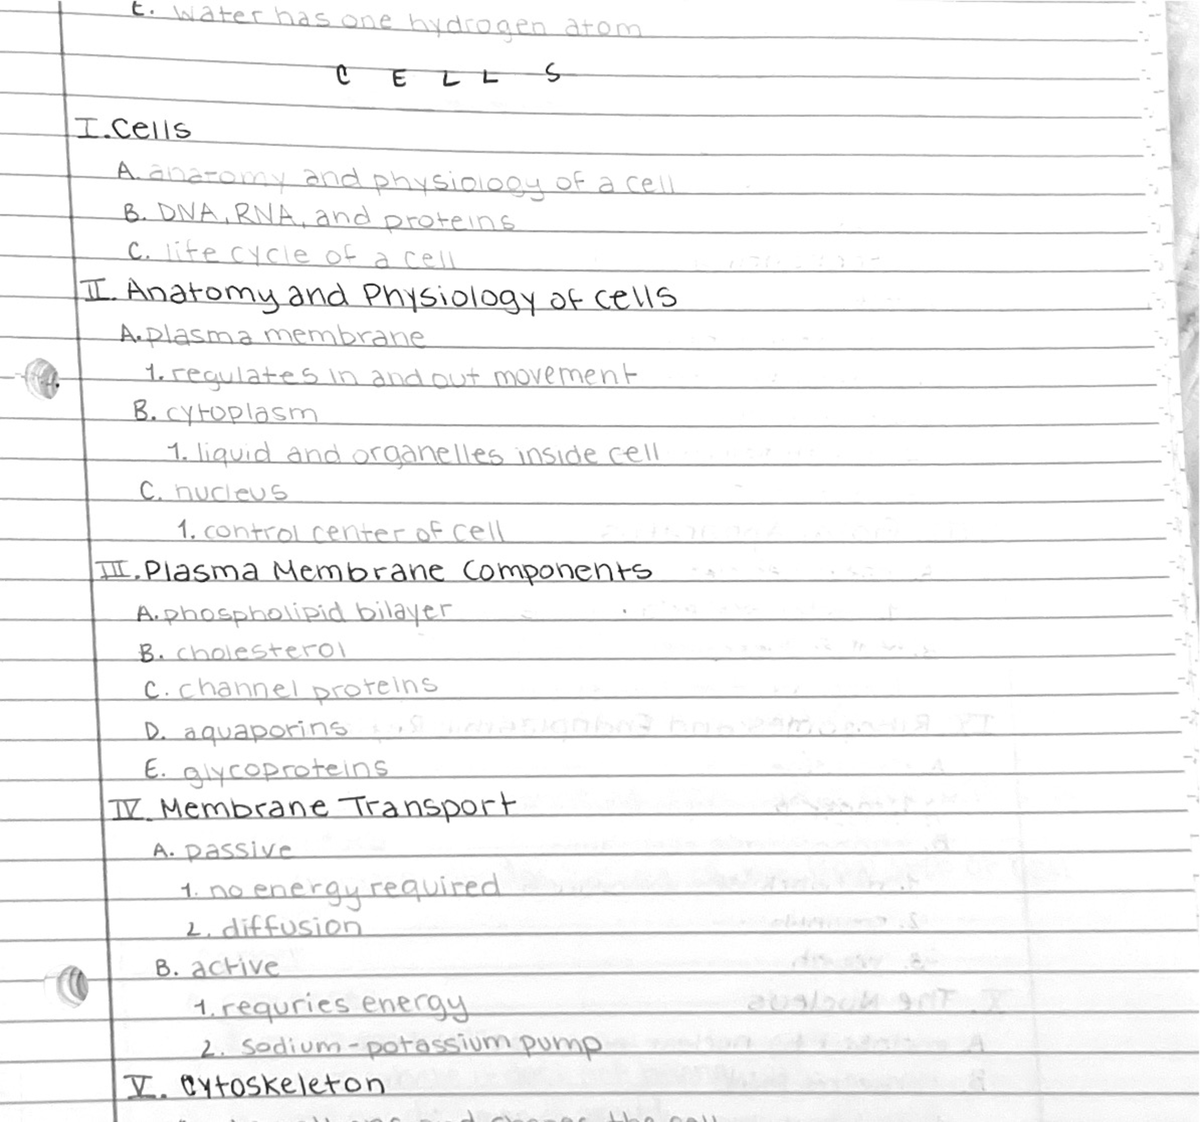 E. Water has one hydrogen atom
C E L L S
I. Cells
A. anatomy and physiology of a cell
B. DNA, RNA, and proteins
C. life cycle of a cell
II. Anatomy and Physiology of cells
A. plasma membrane
1. regulates in and out movement
B. cytoplasm
1. liquid and organelles inside cell
C. nucleus
1. control center of cell
III. Plasma Membrane Components
A. phospholipid bilayer
B. cholesterol
C. channel proteins
D. aquaporins
E. glycoproteins
IV. Membrane Transport
A. passive
1. no energy required
2. diffusion
B. active
1. requries energy
2. sodium-potassium pump
V. Cytoskeleton
the cell